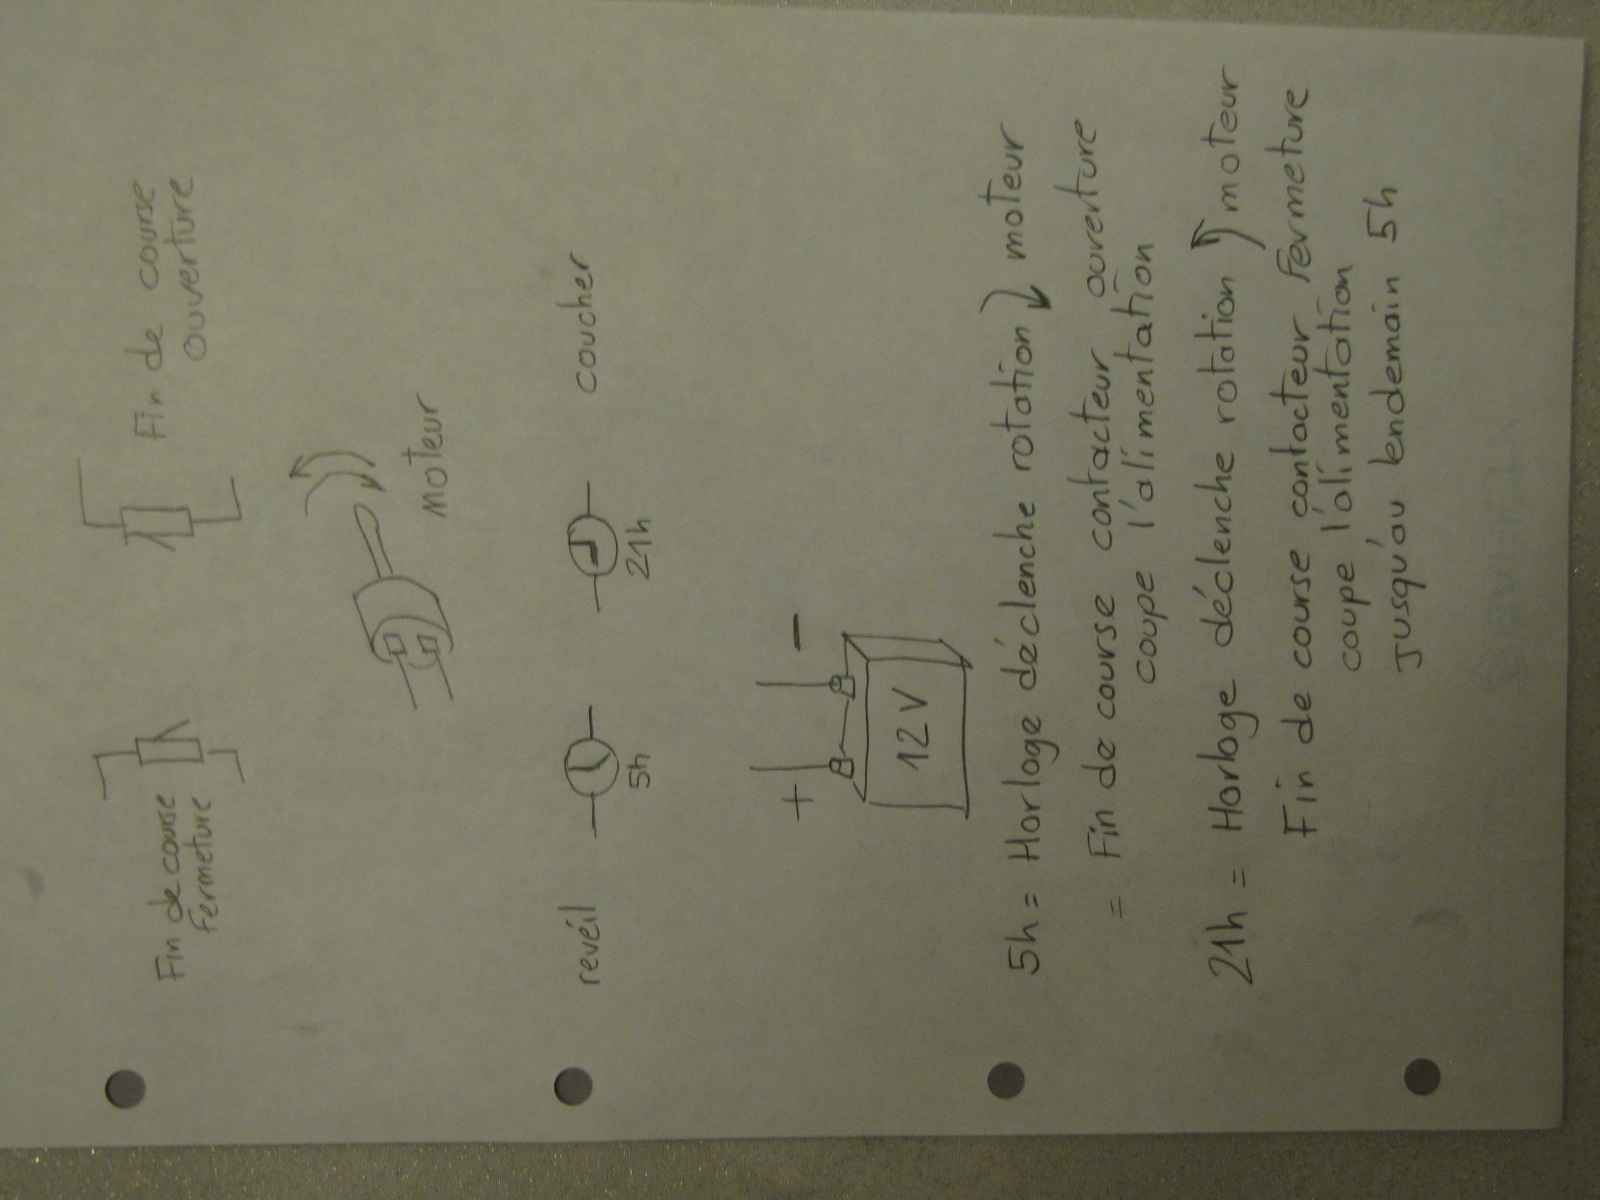 Fin de course
Fermeture
Fin de course
ouverture
moteur
reveil
5h
21h
coucher
+
-
12V
5h = Horloge déclenche rotation moteur
= Fin de course contacteur ouverture
coupe l'alimentation
21h = Horloge déclenche rotation moteur
Fin de course contacteur Fermeture
coupe l'alimentation
jusqu'au lendemain 5h